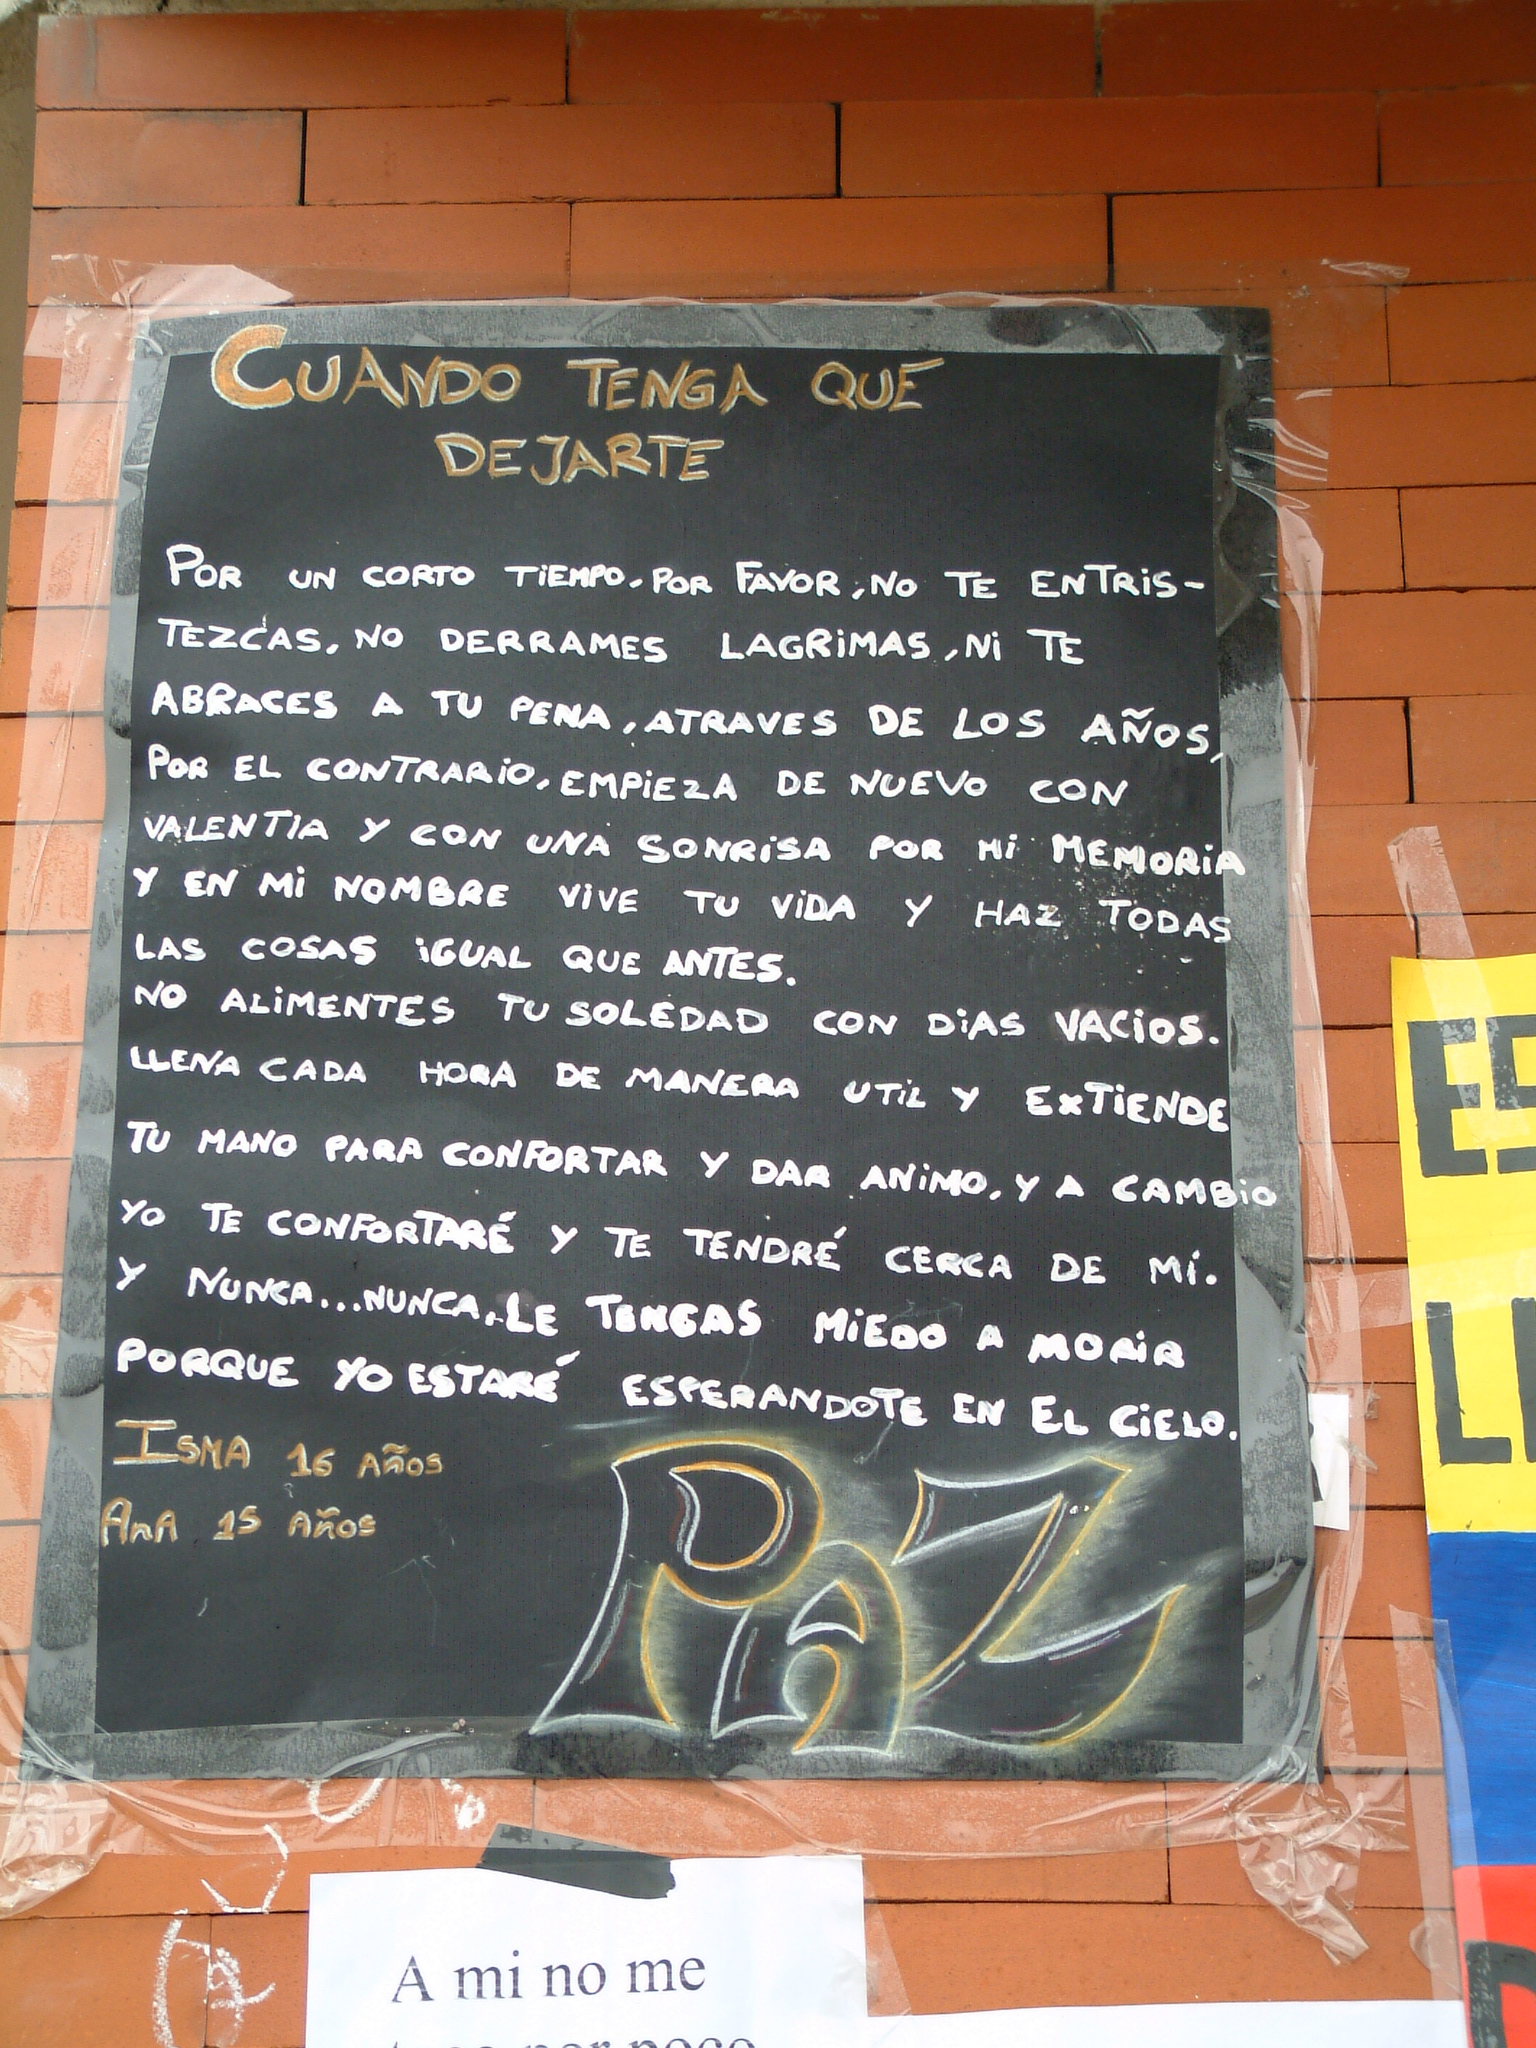 CUANDO TENGA QUE
DEJARTE
POR UN CORTO TIEMPO. POR FAVOR, NO TE ENTRIS-
TEZCAS, NO DERRAMES LAGRIMAS, NI TE
ABRACES A TU PENA, ATRAVES DE LOS AÑOS,
POR EL CONTRARIO, EMPIEZA DE NUEVO CON
VALENTIA Y CON UNA SONRISA POR MI MEMORIA
Y EN MI NOMBRE VIVE TU VIDA Y HAZ TODAS
LAS COSAS IGUAL QUE ANTES.
NO ALIMENTES TU SOLEDAD CON DIAS VACIOS.
LLENA CADA HORA DE MANERA UTIL Y EXTIENDE
TU MANO PARA CONFORTAR Y DAR ANIMO, Y A CAMBIO
YO TE CONFORTARÉ Y TE TENDRÉ CERCA DE MÍ.
Y NUNCA...NUNCA, LE TENGAS MIEDO A MORIR
PORQUE YO ESTARÉ ESPERANDOTE EN EL CIELO.
ISMA 16 AÑOS
ANA 15 AÑOS
PAZ
ES
LI
A mi no me
por poco